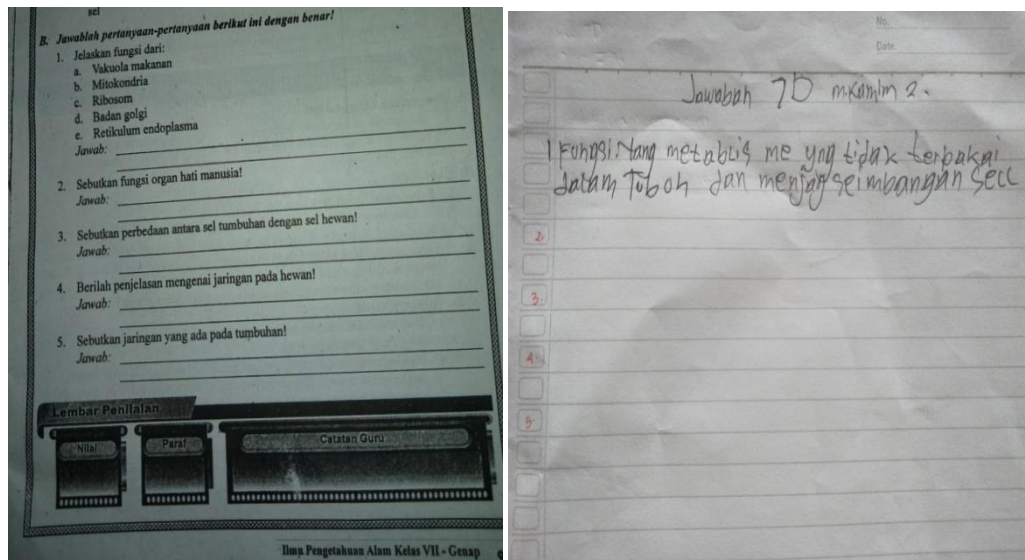 sel
B. Jawablah pertanyaan-pertanyaan berikut ini dengan benar!
1. Jelaskan fungsi dari:
a. Vakuola makanan
b. Mitokondria
c. Ribosom
d. Badan golgi
e. Retikulum endoplasma
Jawab:
2. Sebutkan fungsi organ hati manusia!
Jawab:
3. Sebutkan perbedaan antara sel tumbuhan dengan sel hewan!
Jawab:
4. Berilah penjelasan mengenai jaringan pada hewan!
Jawab:
5. Sebutkan jaringan yang ada pada tumbuhan!
Jawab:
Lembar Penilaian
Nilai
Paraf
Catatan Guru
Ilmu Pengetahuan Alam Kelas VII - Genap
No.
Date
Jawaban 7D
1 Fungsi
tidak terbakai
dalam Tuboh dan
2.
3.
4.
5.